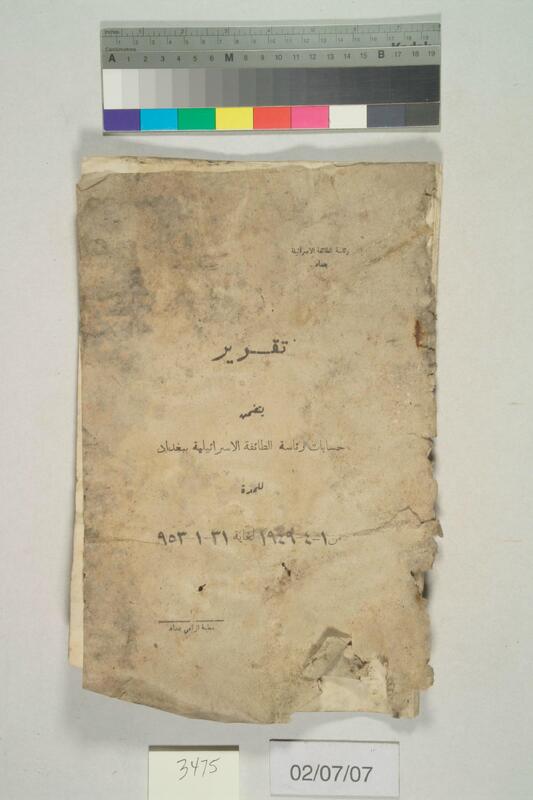 Inches
Centimetres
A 1 2 3 4 5 6 M 8 9 10 11 12 13 14 15 B 17 18 19
رئاسة الطائفة الاسرائيلية
بغداد
تقـــرير
يتضمن
حسابات رئاسة الطائفة الاسرائيلية ببغداد
للمدة
من ١-٤-١٩٤٩ لغاية ٣١-١-٩٥٣
بغداد
3475
02/07/07